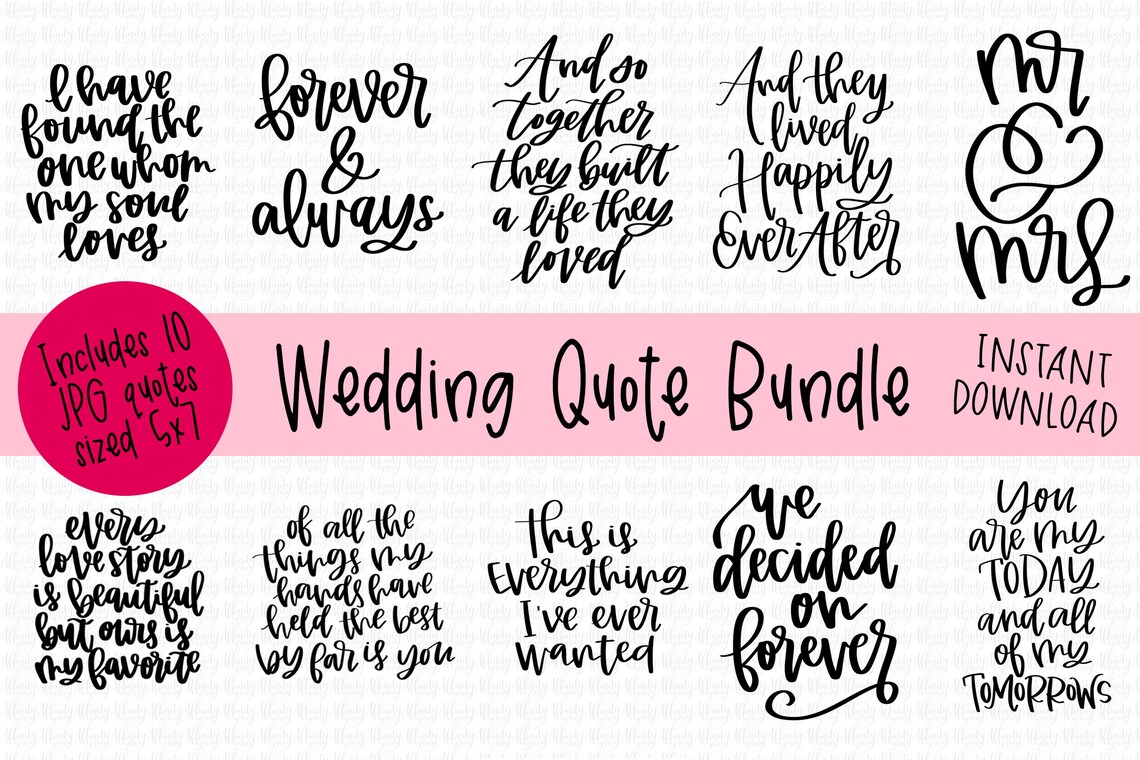 I have
found the
one whom
my soul
loves
forever
&
always
And so
together
they built
a life they
loved
And they
lived
Happily
Ever After
mr
&
mrs
Includes 10
JPG quotes
sized 5x7
Wedding Quote Bundle
INSTANT
DOWNLOAD
every
love story
is beautiful
but ours is
my favorite
of all the
things my
hands have
held the best
by far is you
This is
Everything
I've ever
wanted
we
decided
on
forever
You
are my
TODAY
and all
of my
TOMORROWS